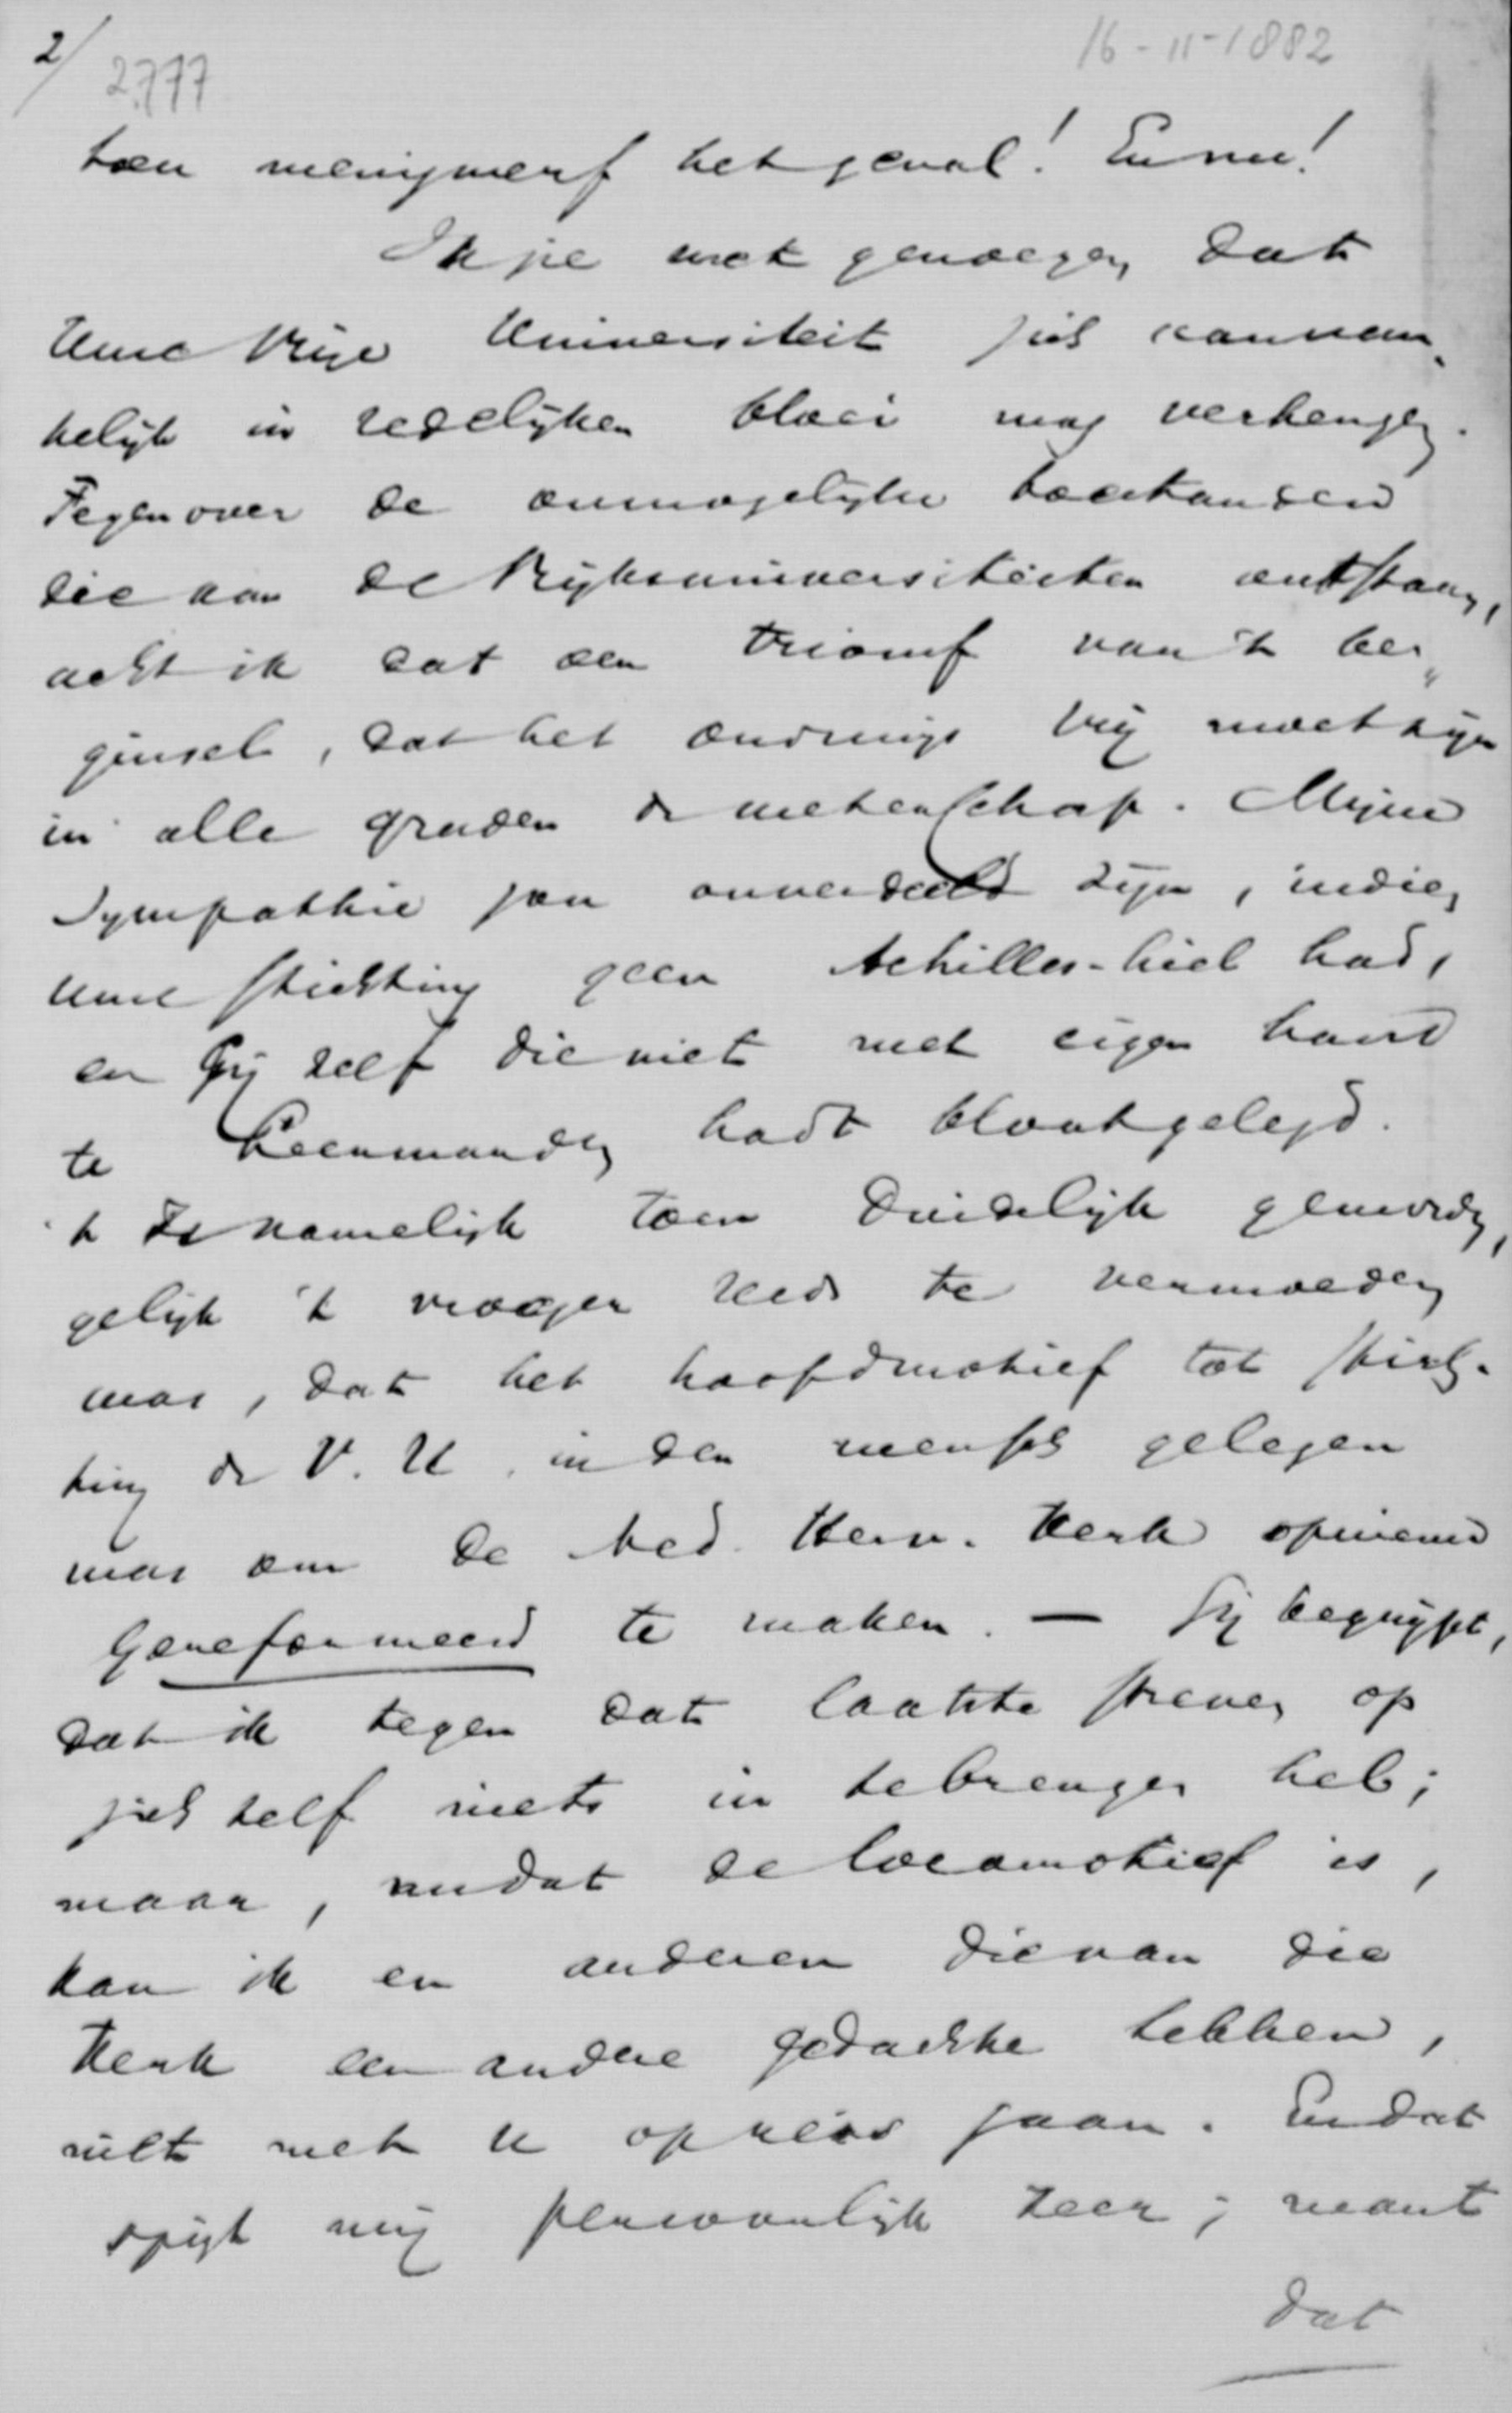 2/
2777
16-11-1882
toen menigwerf het geval! En nu!
Ik zie met genoegen, dat
Uwe Vrije Universiteit zich aanvan-
kelijk in redelijken bloei mag verheugen.
Tegenover de onmogelijke toestanden
die aan de Rijksuniversiteiten ontstaan,
acht ik dat een triomf van 't be„
ginsel, dat het onderwijs vrij moet zijn
in alle graden der wetenschap. Mijne
Sympathie zou onverdeeld zijn, indien
uwe stichting geen Achilles-hiel had,
en Gij zelf die niet met eigen hand
te Leeuwarden hadt blootgelegd.
't Is namelijk toen duidelijk geworden,
gelijk 't vroeger reeds te vermoeden
was, dat het hoofdmotief tot stich-
ting der V. U. in den wensch gelegen
was om de Ned. Herv. Kerk opnieuw
Gereformeerd te maken. — Gij begrijpt,
dat ik tegen dat laatste streven op
zich zelf niets in te brengen heb;
maar, nu dat de locomotief is,
kan ik en anderen die van die
Kerk een andere gedachte hebben,
niet met U op reis gaan. En dat
spijt mij persoonlijk zeer; want
dat